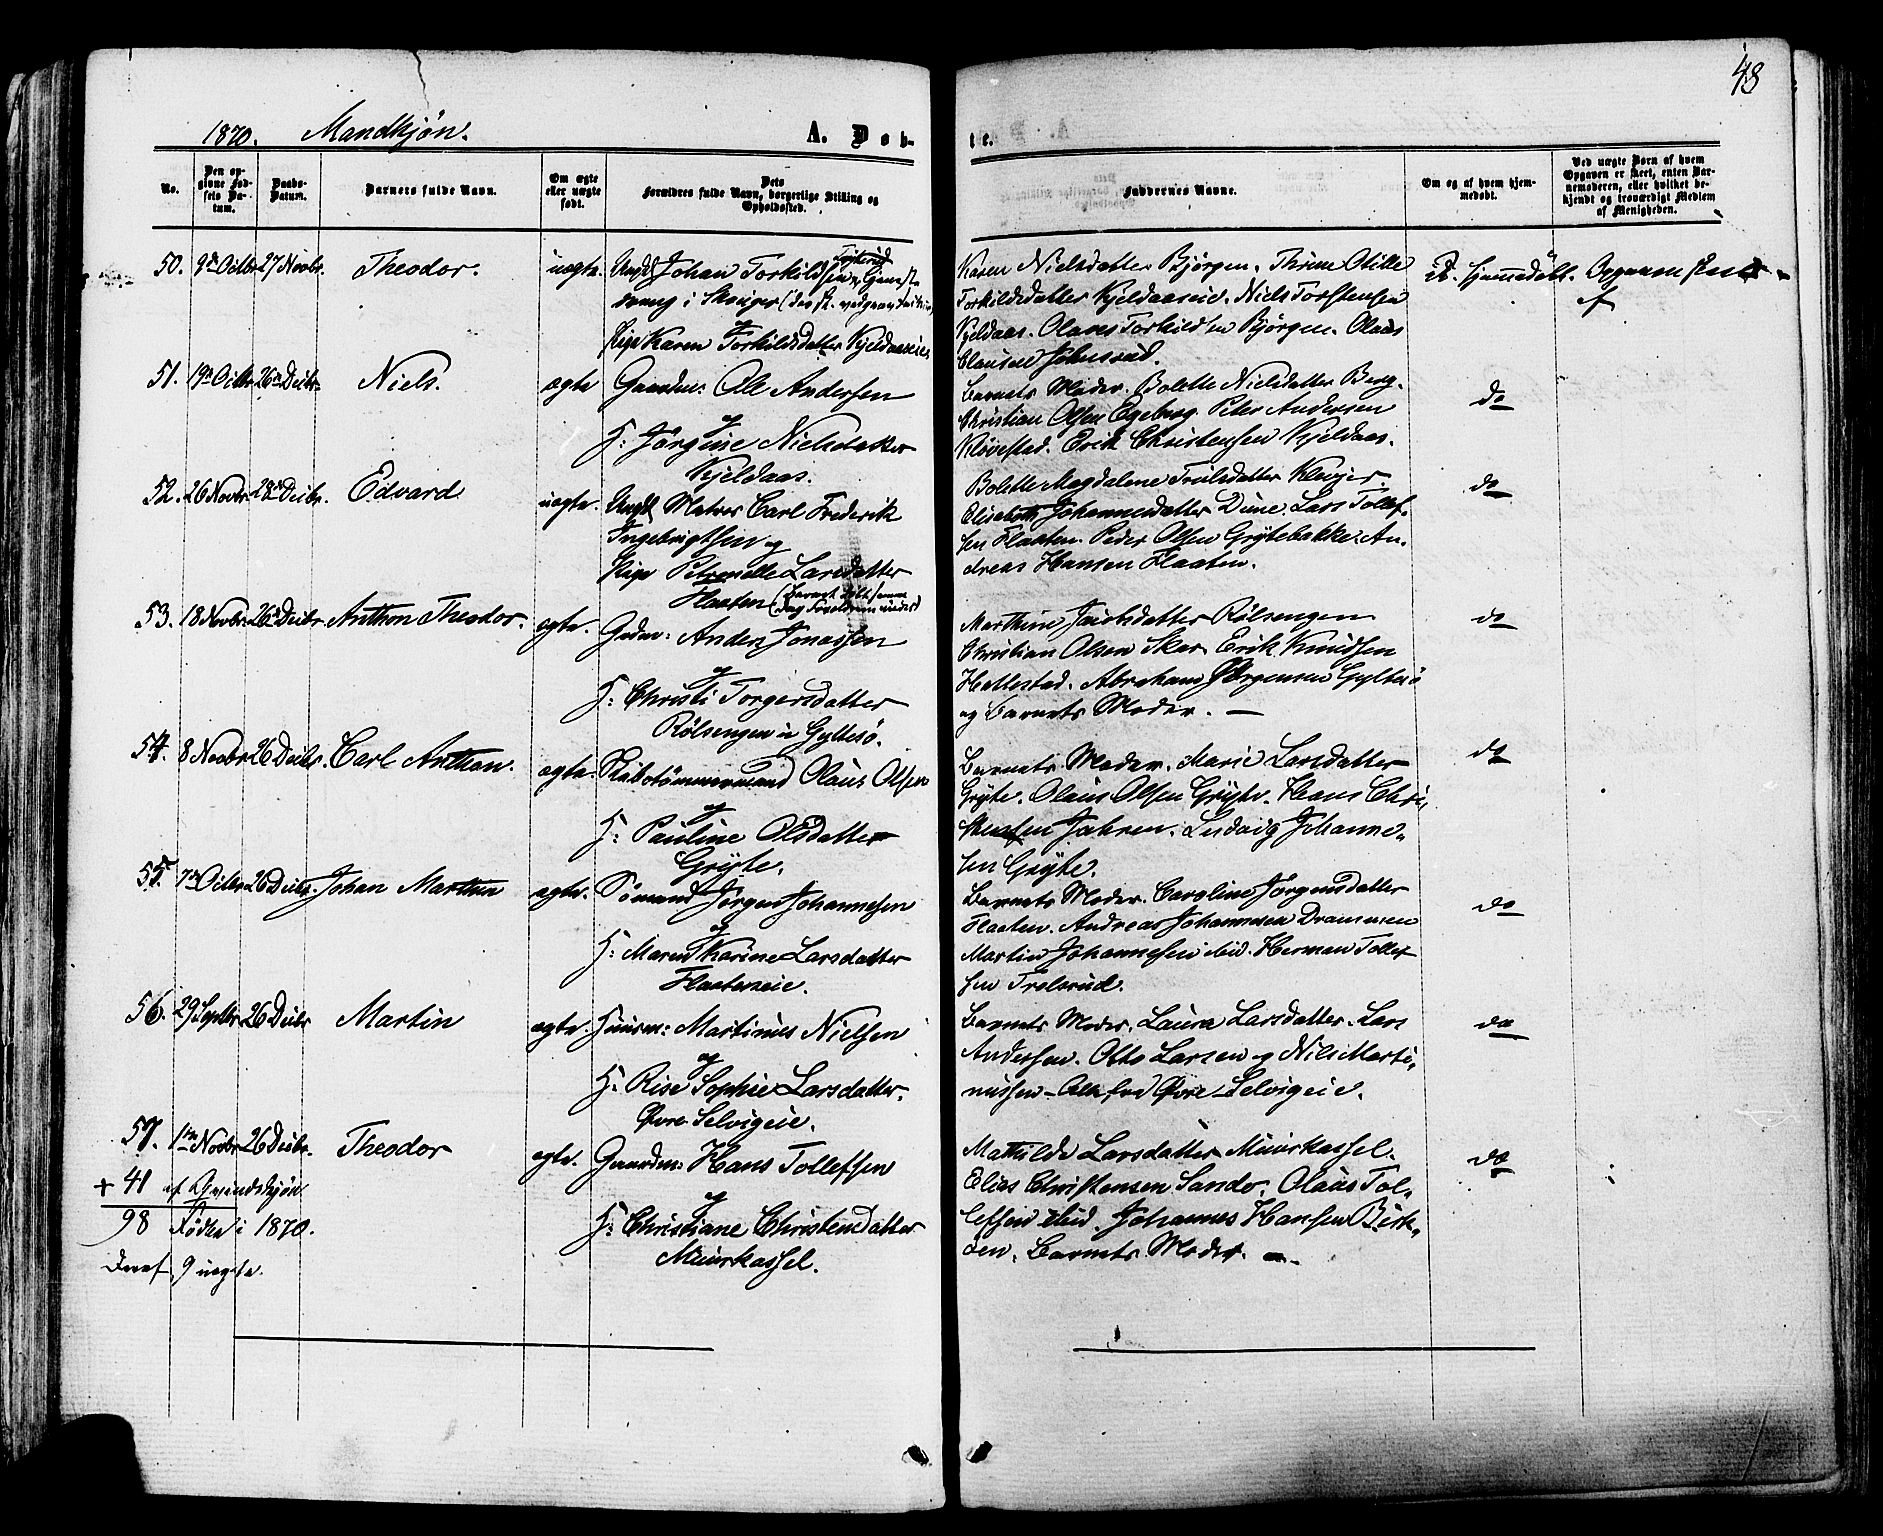 48
1870. Mandkjøn. A. Døb-
te.
No.
Den op-
givne Fød-
sels Da-
tum.
Daabs-
Datum.
Barnets fulde Navn.
Om ægte
eller uægte
født.
Dets
Forældres fulde Navn, borgerlige Stilling og
Opholdssted.
Faddernes Navne.
Om og af hvem hjem-
medøbt.
Ved uægte Børn af hvem
Opgaven er skeet, enten Bar-
nemoderen, eller hvilket be-
kjendt og troværdigt Medlem
af Menigheden.
50. 9de Octbr 27 Novbr. Theodor. uægte. Ungk Johan Torkildsen
i Skouger
og
Pige Karen Torkildsdatter Kjeldaaseie
Karen Nielsdatter Bjørgen. Thrine Otilie
Torkildsdatter Kjeldaaseie. Niels Torstensen
Kjeldaas. Olaves Torkildsen Bjørgen. Olaus
Clausen Johnsrud.
Ei hjemmedøbt.
51. 19de Octbr 26de Decbr. Niels. ægte Gaardm: Ole Andersen
og
H: Jørgine Nielsdatter
Kjeldaas.
Barnets Moder. Bolette Nielsdatter Berg.
Christian Olsen Egeberg. Peter Andersen
Kløvestad. Erik Christensen Kjeldaas.
do
52. 26 Novbr. 28de Decbr. Edvard uægte. Ungk Matros Carl Frederik
Ingebrigtsen og
Pige Petronelle Larsdatter
Flaaten (Barnet døbt samme
Dag Forældrene viedes)
Bolette Magdalene Trulsdatter Klevjer.
Elisabeth Johannesdatter Dune. Lars Tollef-
sen Flaaten. Peder Olsen Grytebakke. An-
dreas Hansen Flaaten.
do
53. 18 Novbr. 26de Decbr Anthon Theodor. ægte. Gaardm: Anders Jonassen
og
H: Christi Torgersdatter
Rølsengen i Gyltesø.
Marthine Jacobsdatter Rølsengen
Christian Olsen Skar. Erik Knudsen
Hallestad. Abraham Jørgensen Gyltesø
og Barnets Moder. —
do
54. 8 Novbr 26 Decbr. Carl Anthon. ægte. Skibstømmermand Olaus Olsen
og
H: Pauline Olsdatter
Gryte.
Barnets Moder. Marie Larsdatter
Gryte. Olaus Olsen Gryte. Hans Chri-
stensen Jahren. Ludvig Johanne-
sen Gryte.
do
55. 7de Octbr 26 Decbr. Johan Marthin ægte. Sømand Jørgen Johannesen
og
H: Maren Karine Larsdatter
Flaateneie.
Barnets Moder. Caroline Jørgensdatter
Flaaten. Andreas Johannesen Drammen
Martin Johannesen ibid. Herman Tollef-
sen Trolsrud.
do
56. 29 Septbr 26 Decbr Martin ægte. Huusm: Martinus Nielsen
og
H: Rise Sophie Larsdatter.
Øvre Selvigeie.
Barnets Moder. Laura Larsdatter. Lars
Andersen. Otto Larsen og Nils Marti-
nussen – Alle fra Øvre Selvigeie.
do
57. 1ste Novbr 26 Decbr. Theodor ægte. Gaardm: Hans Tollefsen
og
H: Christiane Christensdatter
Muurkassel.
Mathilde Larsdatter Muurkassel.
Elias Christensen Sando. Olaus Tol-
lefsen ibid. Johannes Hansen Birk-
en. Barnets Moder. —
do
+ 41 af Qvindekjøn
98 Fødte i 1870.
Deraf 9 uægte.